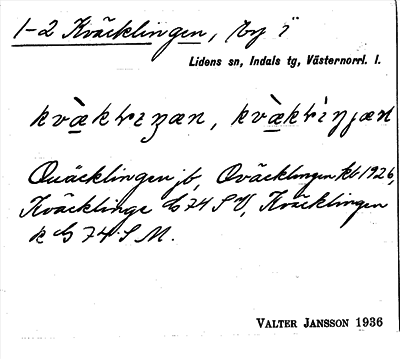 1-2 Kväcklingen, by i
Lidens sn, Indals tg, Västernorrl. l.
kvæ̀klıŋæn, kvæ̀klìŋjæn
Quäcklingen jb, Qväcklingen kb 1926,
Kväcklinge G 74 SV, Kväcklingen
k G 74 SM.
VALTER JANSSON 1936